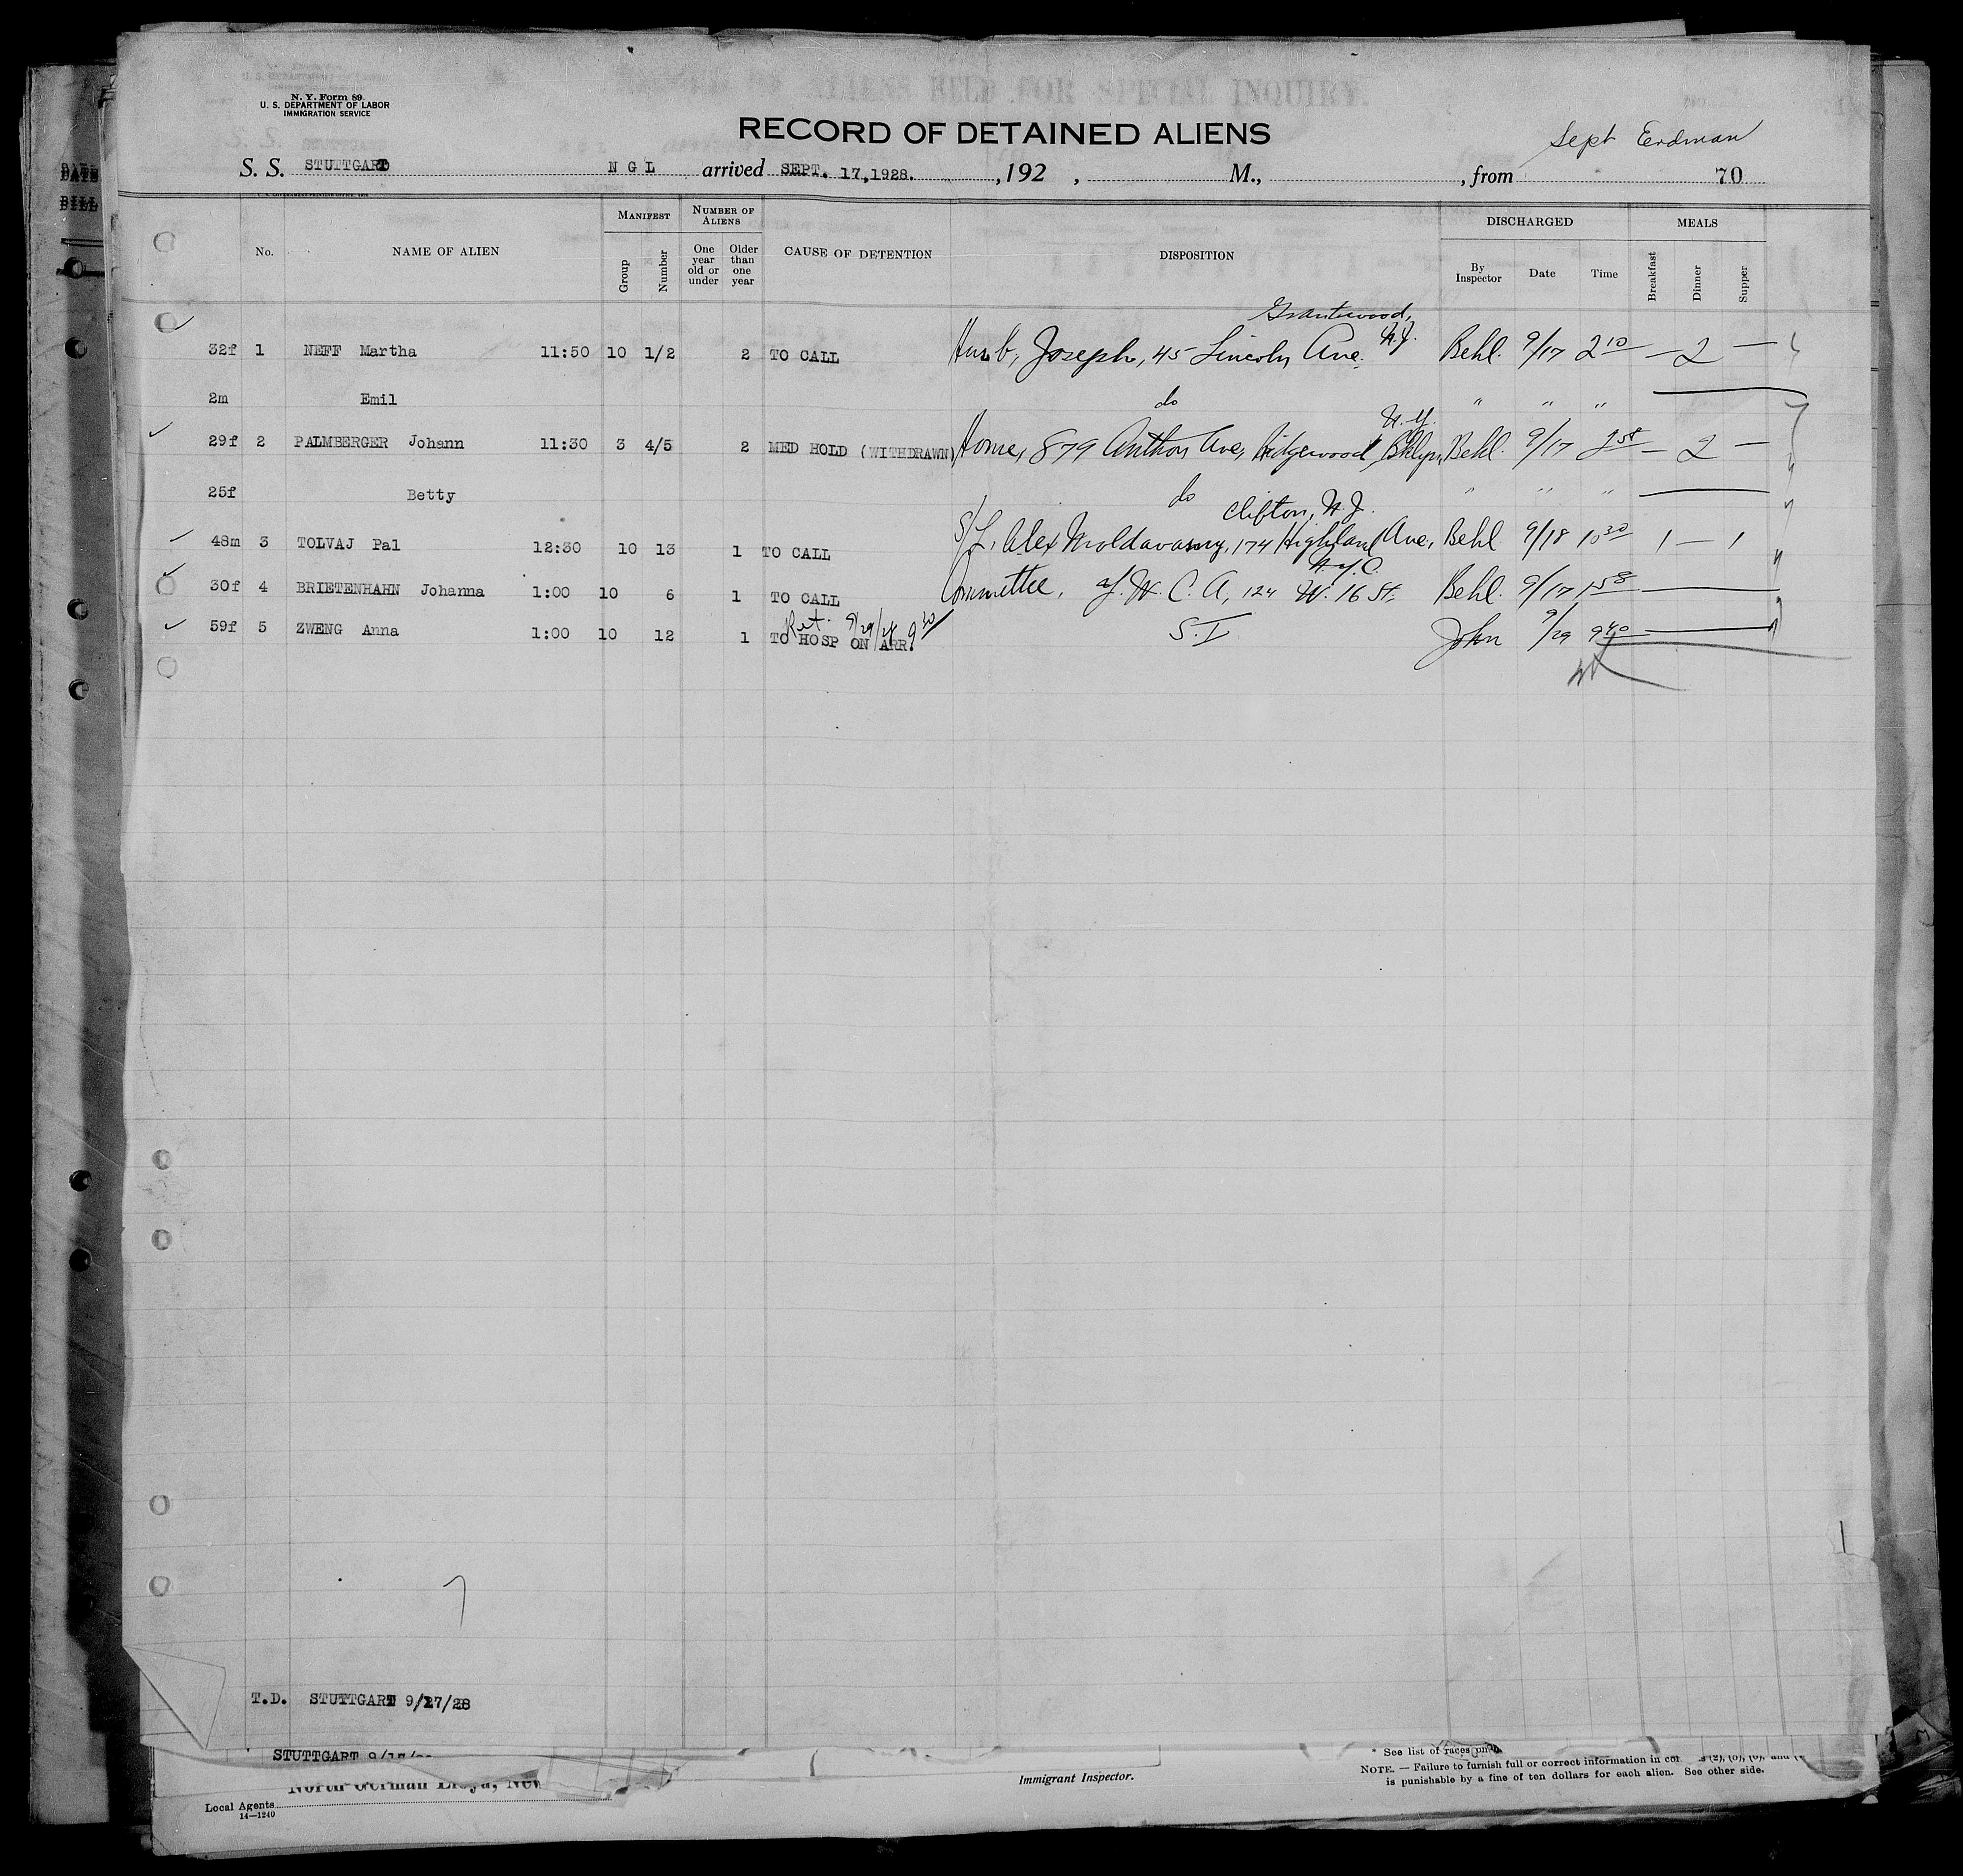 N. Y. Form 89
U. S. DEPARTMENT OF LABOR
IMMIGRATION SERVICE
RECORD OF DETAINED ALIENS
Sept Erdman
S. S. STUTTGART N G L arrived SEPT. 17,1928. , 192 , M., , from 70
No. NAME OF ALIEN MANIFEST Group Number NUMBER OF ALIENS One year old or under Older than one year CAUSE OF DETENTION DISPOSITION DISCHARGED By Inspector Date Time MEALS Breakfast Dinner Supper
Grantwood,
32f 1 NEFF Martha 11:50 10 1/2 2 TO CALL Husb, Joseph, 45 Lincoln Ave. N.J. Behl. 9/17 2 10 — 2 —
2m Emil do " " "
N.Y.
29f 2 PALMBERGER Johann 11:30 3 4/5 2 MED HOLD (WITHDRAWN) Home, 879 Anthon Ave, Ridgewood, Bklyn, Behl. 9/17 — 2 —
25f Betty do " " "
Clifton, N.J.
48m 3 TOLVAJ Pal 12:30 10 13 1 TO CALL Alex 174 Highland Ave, Behl 9/18 10 30 1 — 1
N.Y.C.
30f 4 BRIETENHAHN Johanna 1:00 10 6 1 TO CALL Committee, Y.W.C.A, 124 W. 16 St. Behl. 9/17 1 58
Ret. 9/29/28 9 30
59f 5 ZWENG Anna 1:00 10 12 1 TO HOSP ON ARR. S.I John 9/29 9 40
T.D. STUTTGART 9/17/28
STUTTGART 9/17/
See list of races on
North German Lloyd, New
Immigrant Inspector.
NOTE. — Failure to furnish full or correct information in
is punishable by a fine of ten dollars for each alien. See other side.
Local Agents
14—1240